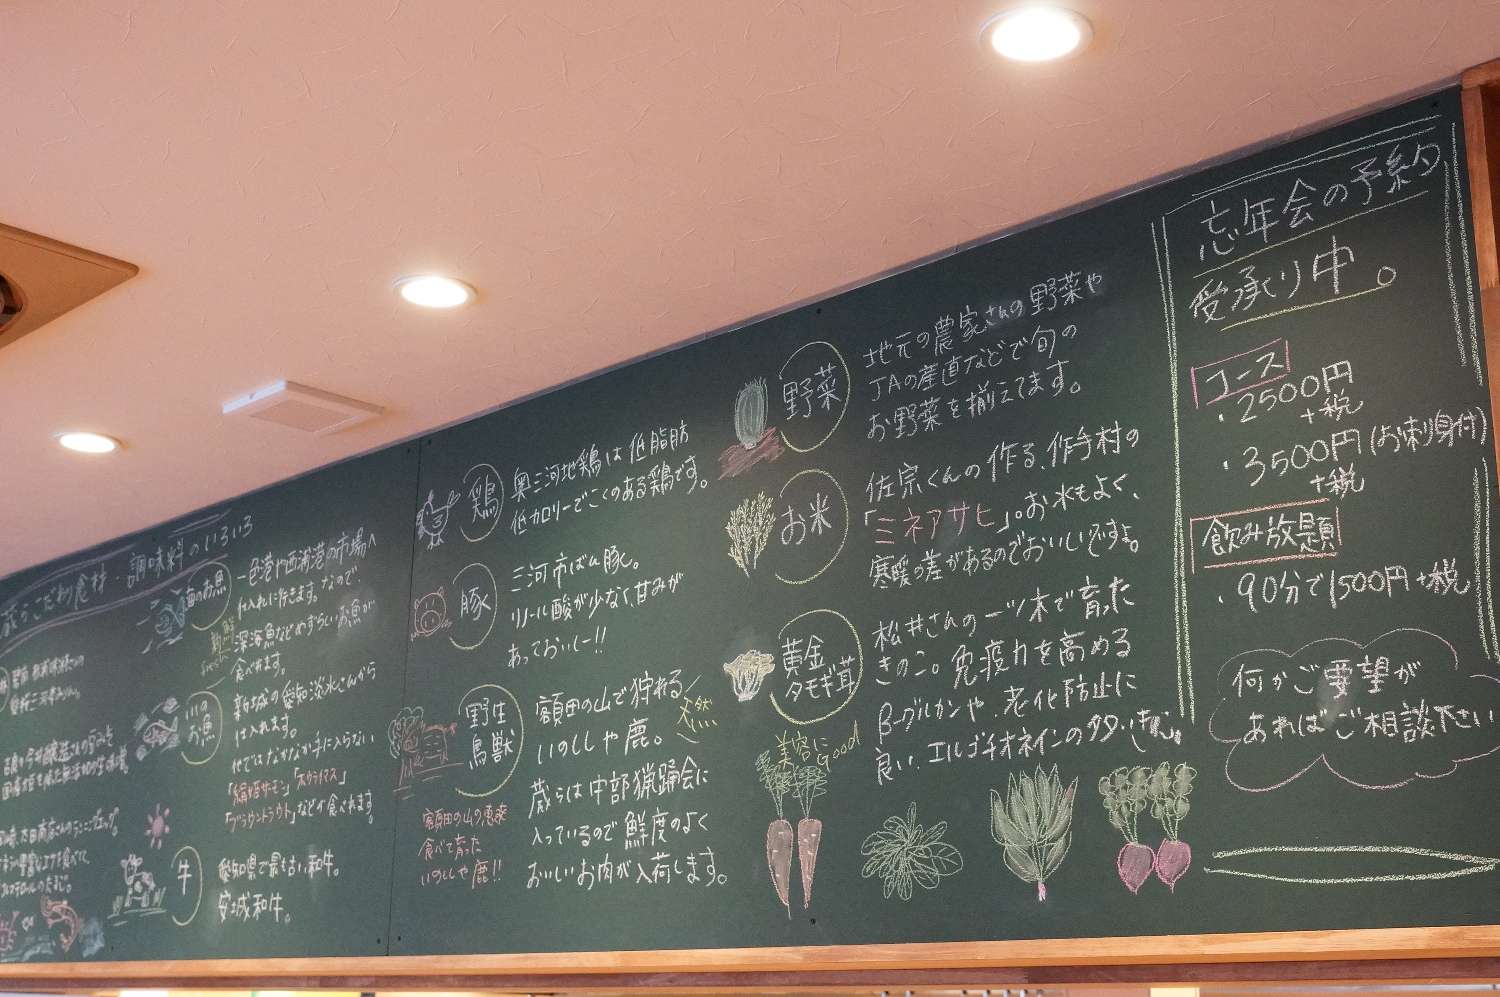 蔵らこだわり食材・調味料のいろいろ
海のお魚
新鮮
一色港や西浦港の市場へ
仕入れに行きます。なので
深海魚などめずらしいお魚が
食べれます。
川のお魚
新城の愛知淡水さんから
仕入れます。
他ではなかなか手に入らない
「絹姫サーモン」「ホウライマス」
「ブラウントラウト」などが食べれます。
牛
愛知県で最も古い和牛。
安城和牛。
鶏
奥三河地鶏は低脂肪
低カロリーでこくのある鶏です。
豚
三河市ばん豚。
リノール酸が少なく、甘みが
あっておいしー!!
野生
鳥獣
額田の山で狩れる
天然
いのししや鹿。
蔵らは中部猟踊会に
入っているので鮮度のよく
おいしいお肉が入荷します。
額田の山の恵み
食べて育った
いのししや鹿!!
野菜
地元の農家さんの野菜や
JAの産直などで旬の
お野菜を揃えてます。
お米
佐宗くんの作る、作手村の
「ミネアサヒ」。お水もよく、
寒暖の差があるのでおいしいですよ。
黄金
タモギ茸
松井さんの一ツ木で育った
きのこ。免疫力を高める
β-グルカンや、老化防止に
良い、エルゴチオネインの多い
美容に
Good
忘年会の予約
受承り中。
コース
・2500円
+税
・3500円(お刺身付)
+税
飲み放題
・90分で1500円+税
何かご要望が
あればご相談下さい